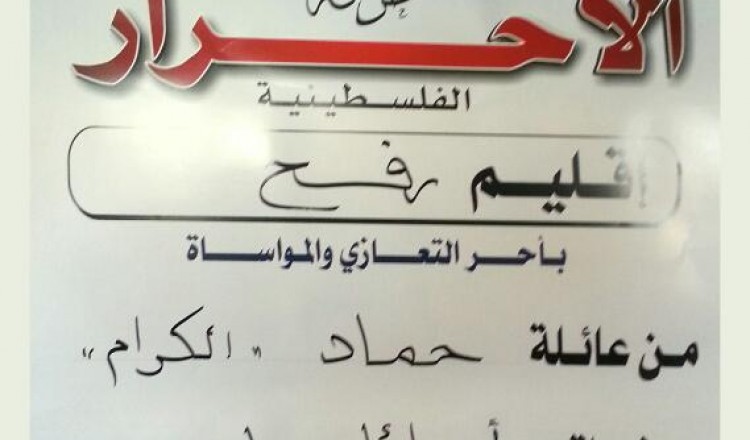 الأحرار
الفلسطينية
إقليم رفح
بأحر التعازي والمواساة
من عائلة حماد "الكرام"